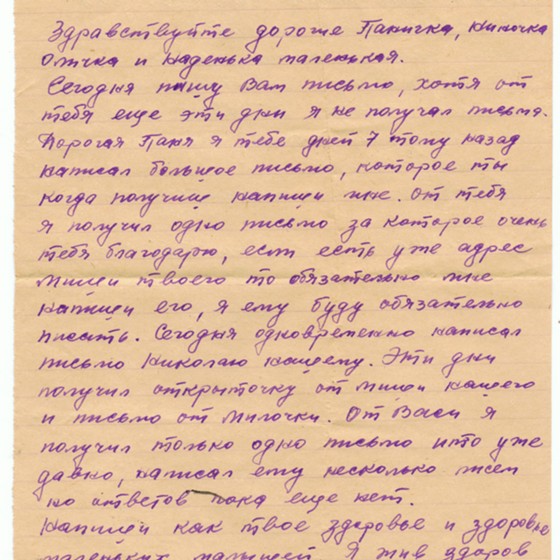 Здравствуйте дорогие Паничка, Ниночка
Оличка и Наденька маленькая.
Сегодня пишу Вам письмо, хотя от
тебя еще эти дни я не получал письма.
Дорогая Паня я тебе дней 7 тому назад
написал большое письмо, которое ты
когда получиш напиши мне. От тебя
я получил одно письмо за которое очень
тебя благодарю, если есть уже адрес
Миши твоего то обязательно мне
напиши его, я ему буду обязательно
писать. Сегодня одновременно написал
письмо Николаю нашему. Эти дни
получил открыточку от Миши нашего
и письмо от Милочки. От Васи я
получил только одно письмо ито уже
давно, написал ему несколько писем
но ответов пока еще нет.
Напиши как твое здоровье и здоровье
маленьких малышей. Я жив здоров